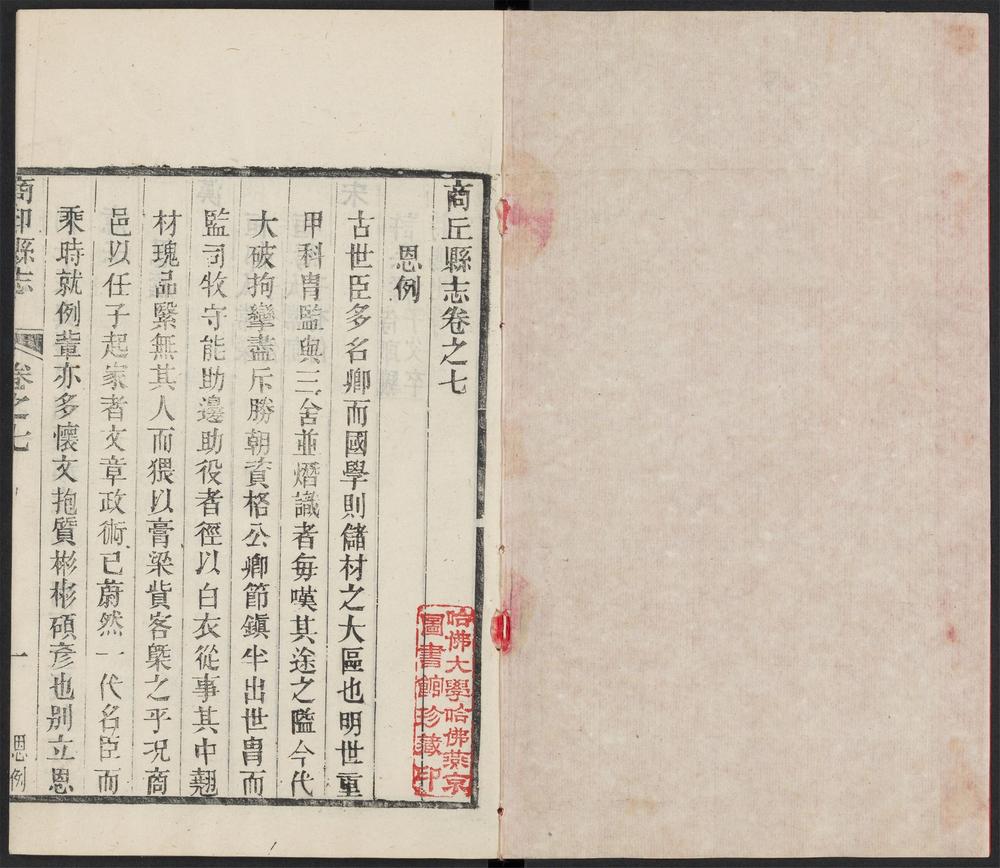 商丘縣志卷之七
恩例
古世臣多名卿而國學則儲材之大區也明世重
甲科胄監與三舍並熸識者每嘆其途之隘今代
大破拘攣盡斥勝朝資格公卿節鎮半出世胄而
監司牧守能助邊助役者徑以白衣從事其中翹
材瑰品繄無其人而猥以膏粱貲客槩之乎况商
邑以任子起家者文章政術已蔚然一代名臣而
乘時就例輩亦多懷文抱質彬彬碩彥也别立恩
商邱縣志
卷之七
一
恩例
哈佛大學哈佛燕京
圖書館珍藏印